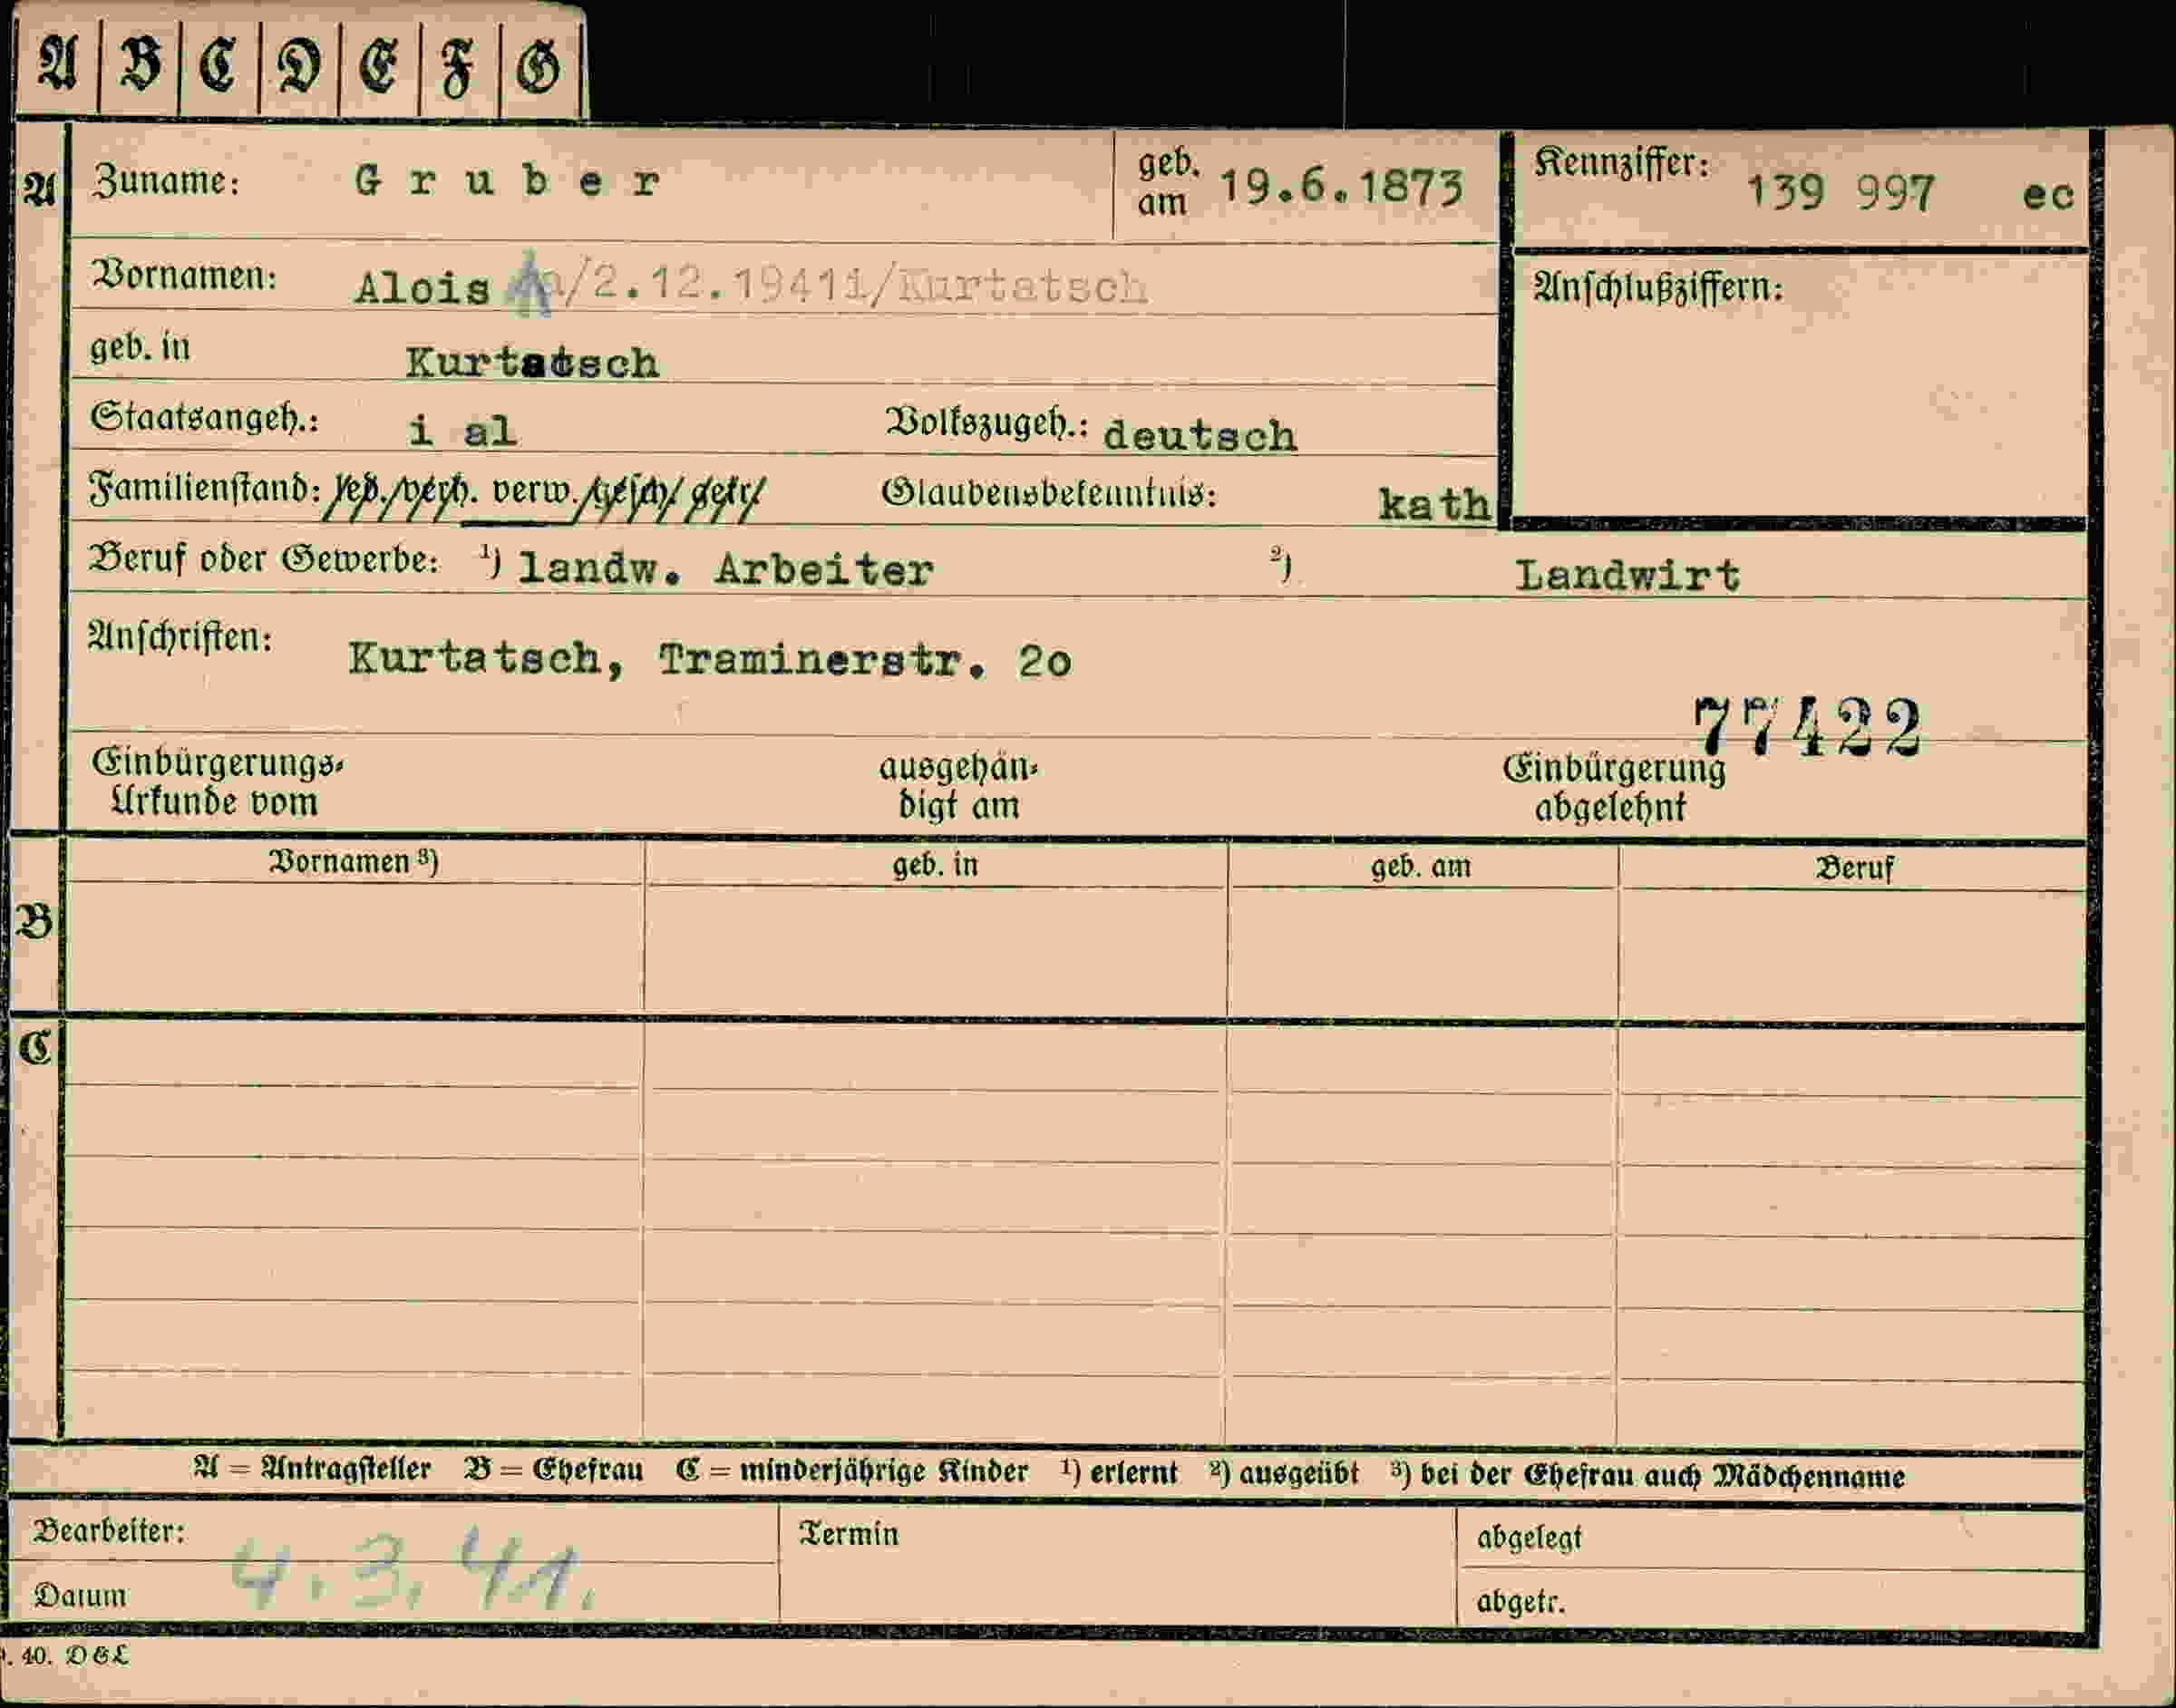 A B C D E F G
A Zuname: Gruber geb. am 19.6.1873 Kennziffer: 139 997 ec
Vornamen: Alois /2.12.19411/Kurtatsch Anschlußziffern:
geb. in Kurtatsch
Staatsangeh.: i al Volkszugeh.: deutsch
Familienstand: led./verh. verw./gesch/ getr/ Glaubensbekenntnis: kath
Beruf oder Gewerbe: ¹) landw. Arbeiter ²) Landwirt
Anschriften: Kurtatsch, Traminerstr. 2o
77422
Einbürgerungs- ausgehän- Einbürgerung
Urkunde vom digt am abgelehnt
Vornamen ³) geb. in geb. am Beruf
B
C
A = Antragsteller B = Ehefrau C = minderjährige Kinder ¹) erlernt ²) ausgeübt ³) bei der Ehefrau auch Mädchenname
Bearbeiter: Termin abgelegt
4.3.41.
Datum abgetr.
. 40. D&L